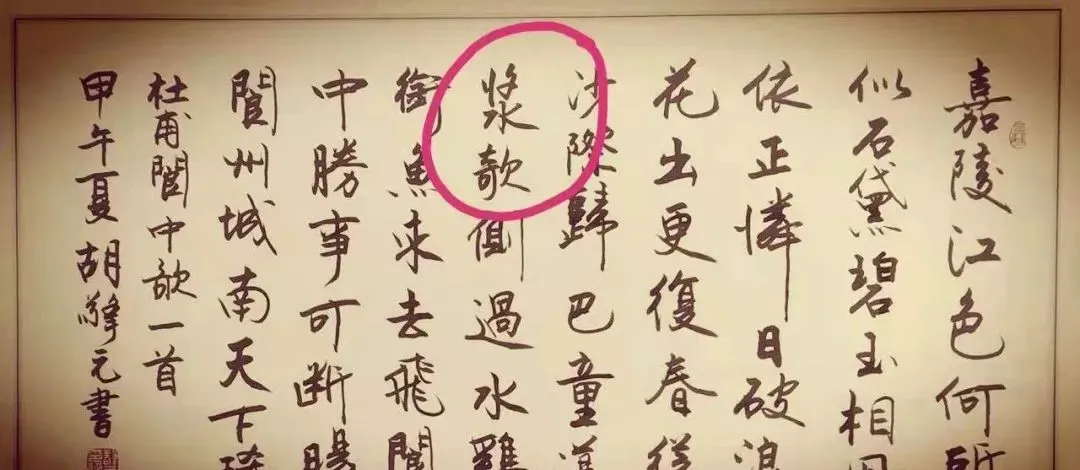 嘉陵江色何所
似石黛碧玉相因
依正憐日破浪
花出更復春從
沙際歸巴童蕩
浆欹側過水雞
銜魚来去飛閬
中勝事可断腸
閬州城南天下稀
杜甫閬中歌一首
甲午夏胡元書